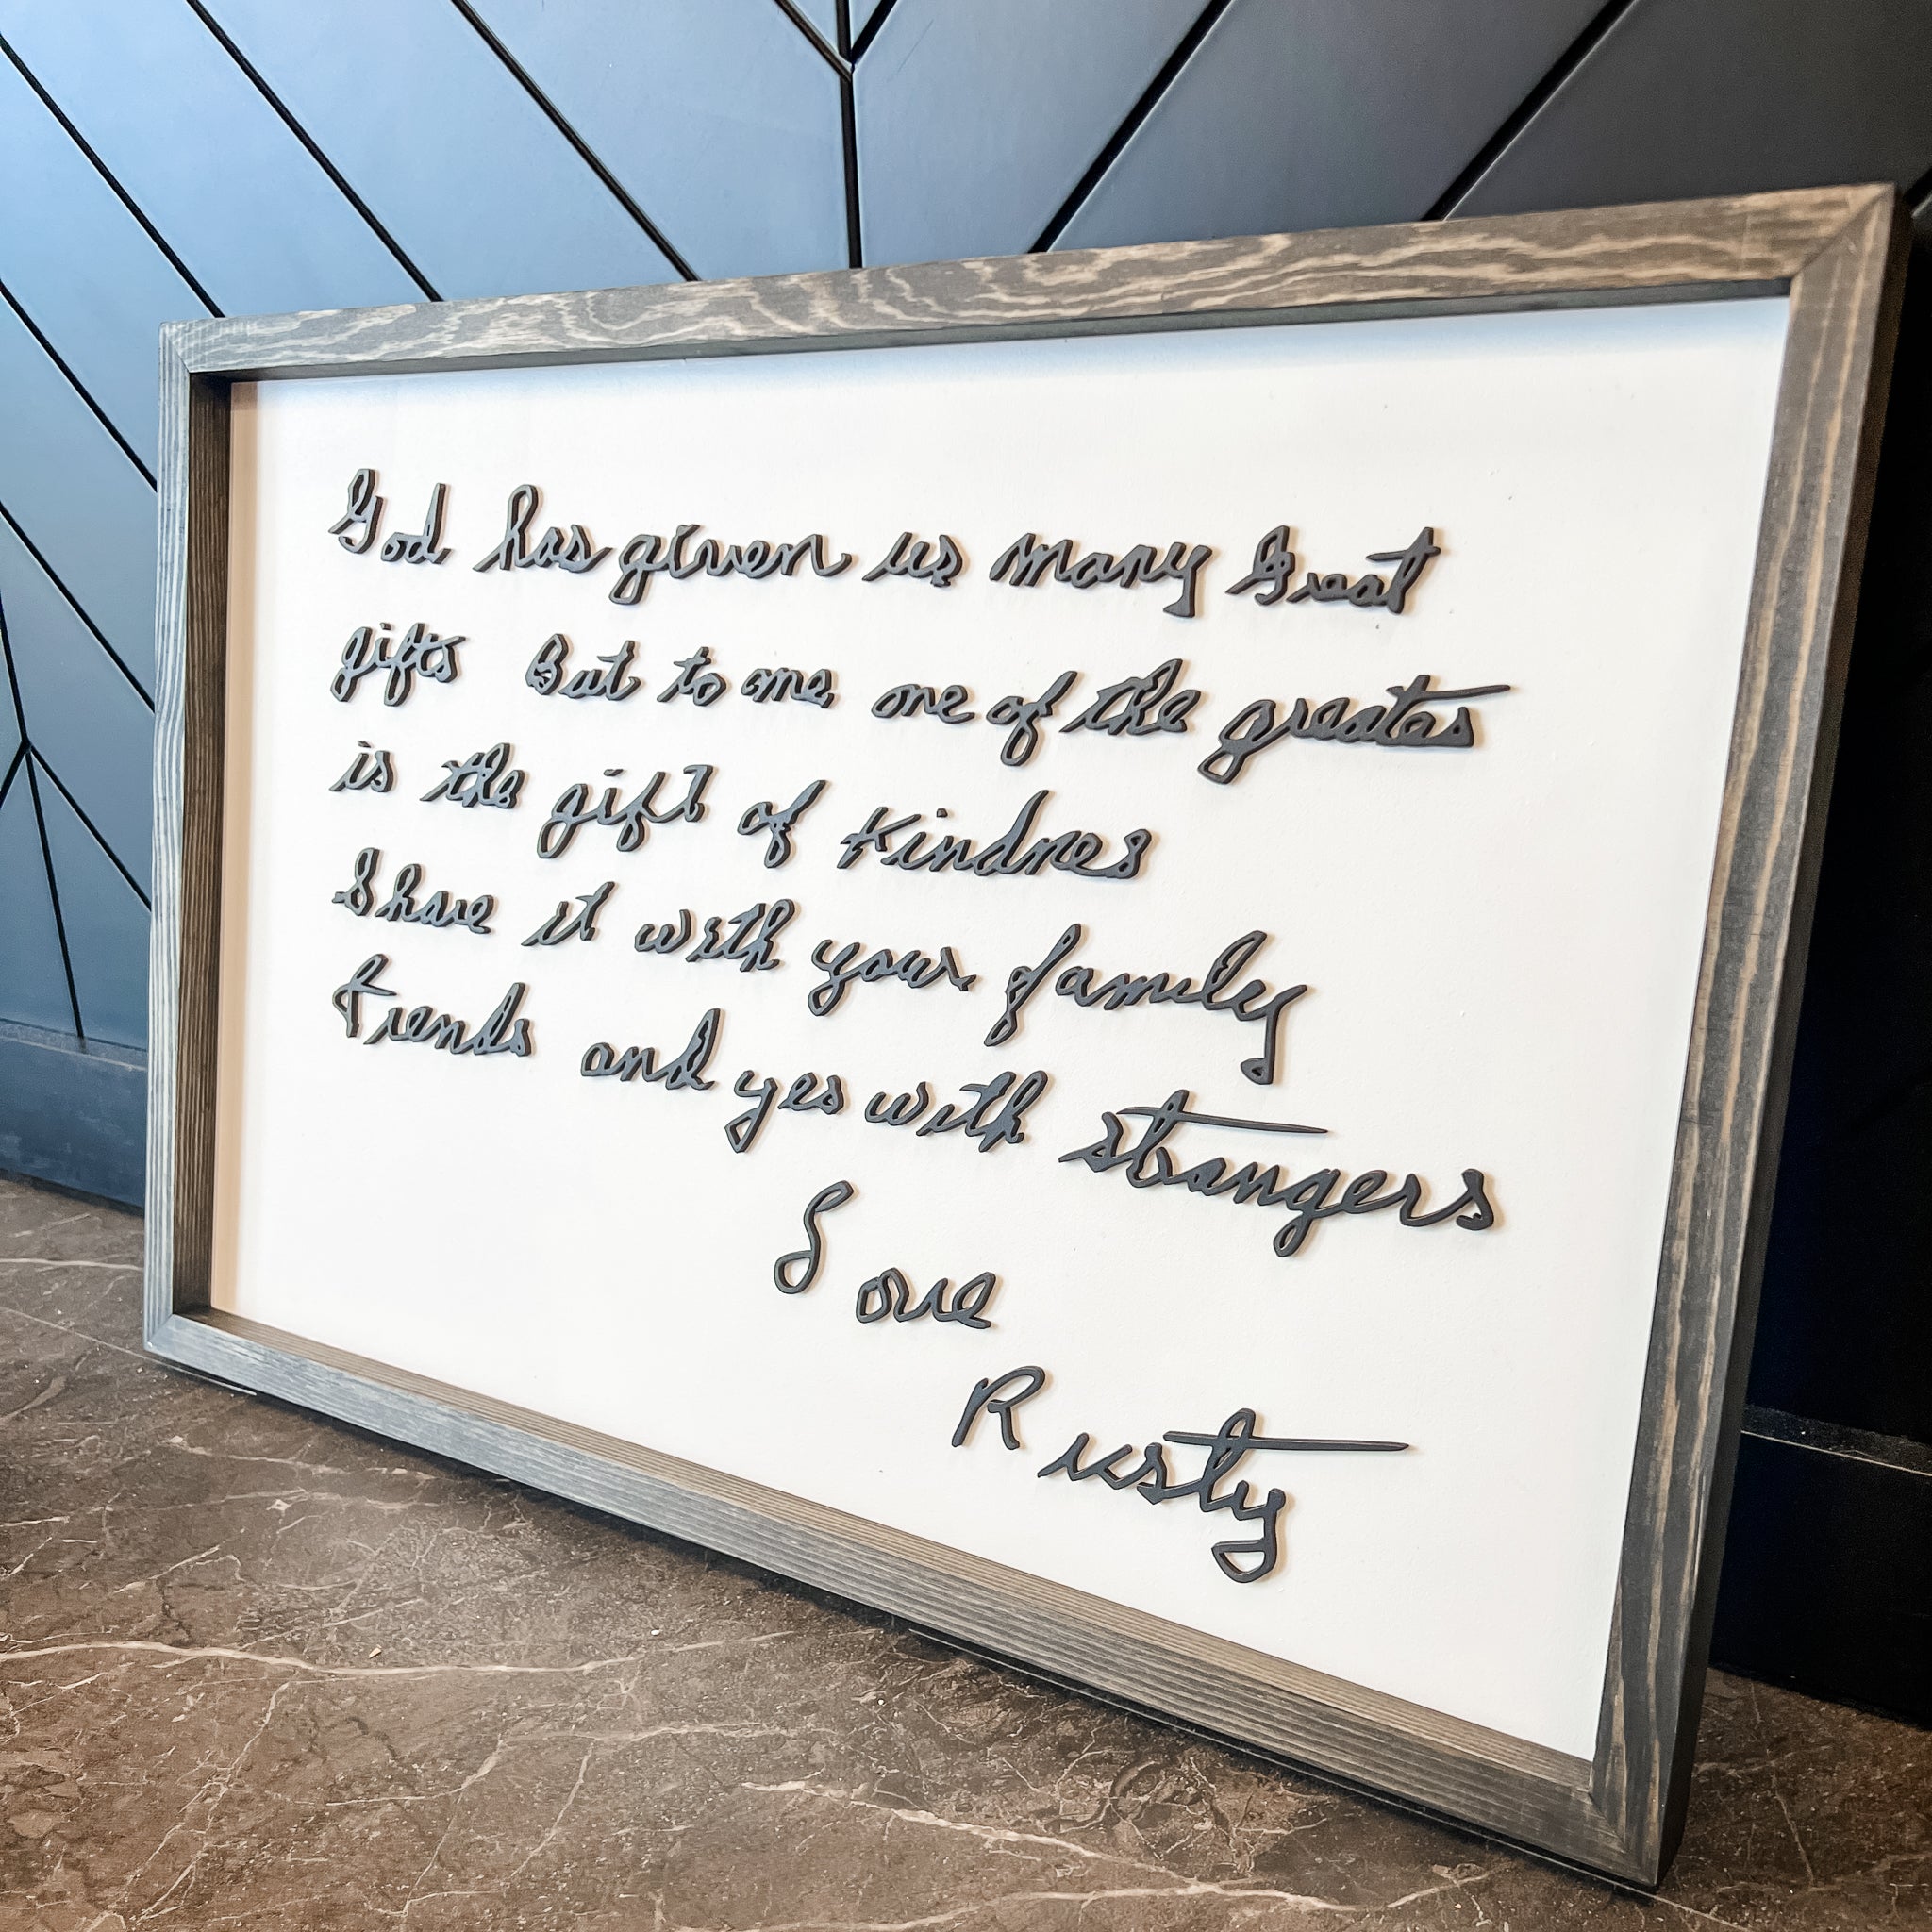 God has given us many Great
gifts But to me, one of the greates
is the gift of Kindnes
Share it with your family
friends and yes with strangers
Love
Rusty